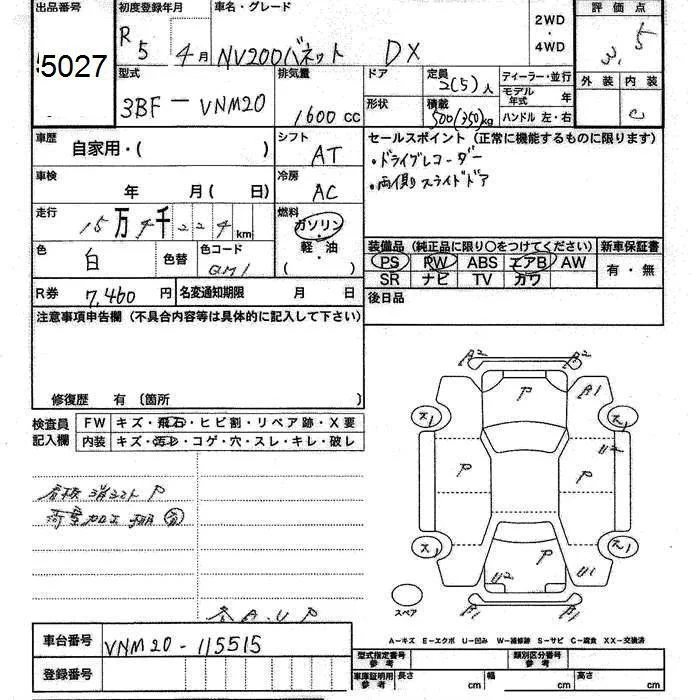 出品番号 初度登録年月 車名・グレード 2WD ・ 4WD 評価点
5027 R 5 4月 NV200バネット DX 3.5
型式 排気量 ドア 定員 2(5)人 ディーラー・並行 外装 内装
3BF - VNM20 1600 CC 形状 積載 500(350)kg モデル年式 年 C
ハンドル 左・右
車歴 自家用・( ) シフト AT セールスポイント (正常に機能するものに限ります)
・ドライブレコーダー
車検 年 月( 日) 冷房 AC ・両側スライドドア
走行 15万4千224km 燃料 ガソリン・軽・油 ( )
色 白 色替 色コード QM1 装備品 (純正品に限り○をつけてください) 新車保証書
PS PW ABS エアB AW 有・無
SR ナビ TV カワ
R券 7,460円 名変通知期限 月 日 後日品
注意事項申告欄 (不具合内容等は具体的に記入して下さい)
修復歴 有 〔箇所 〕
検査員記入欄 FW キズ・飛石・ヒビ割・リペア跡・X要
内装 キズ・汚レ・コゲ・穴・スレ・キレ・破レ
A2 A2
P A1
ス1 ス1
U2
P P
看板消シアト P
荷室加工 棚 有
ス1 ス1
P
U2 U1
スペア A1 A1
各A.U P
A-キズ E-エクボ U-凹み W-補修跡 S-サビ C-腐食 XX-交換済
車台番号 VNM20-115515 型式指定番号 参考 類別区分番号 参考
登録番号 車庫証明用 参考 長さ cm 幅 cm 高さ cm